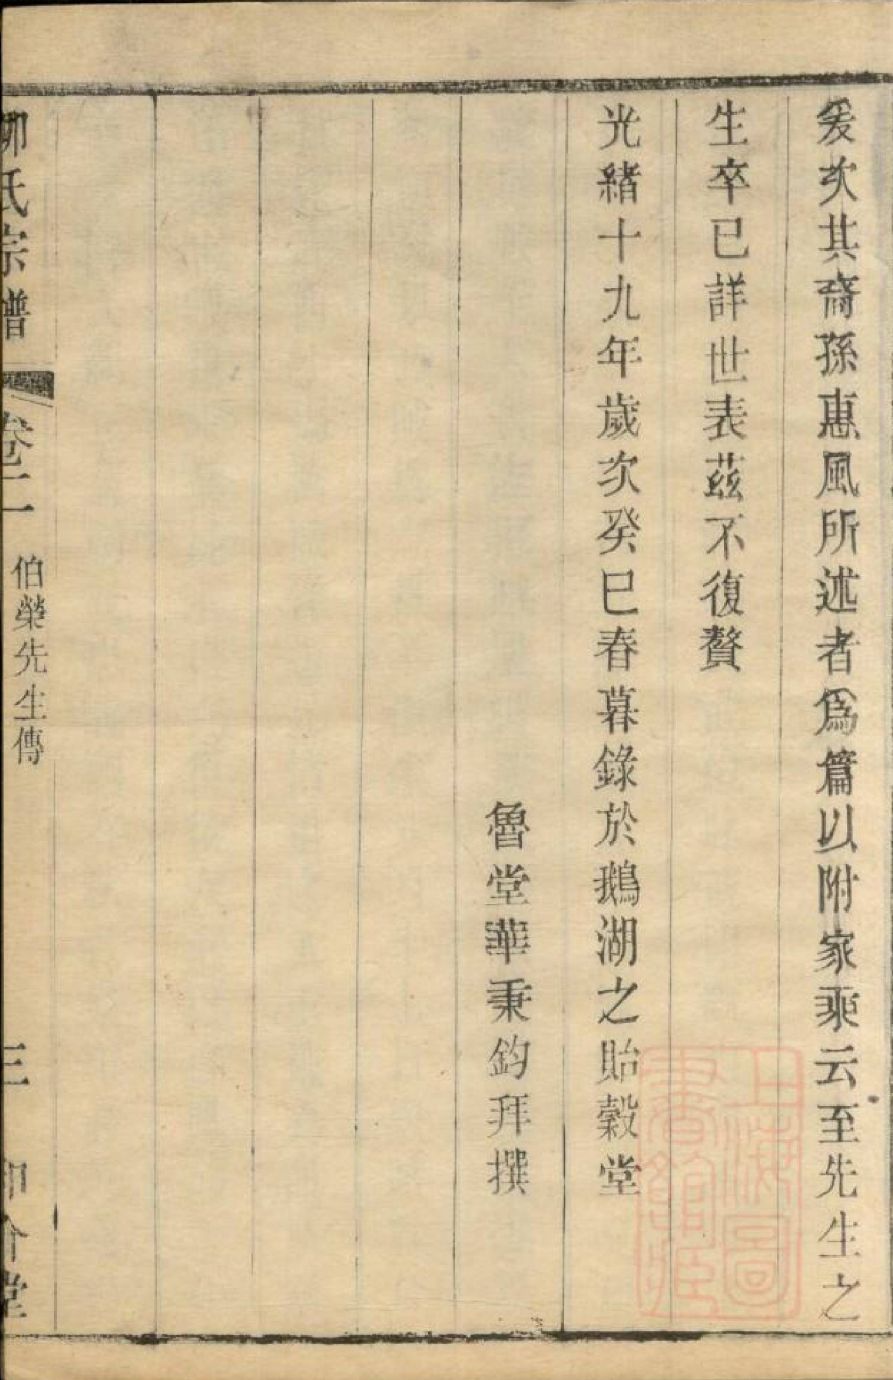 爰次其裔孫惠風所述者爲篇以附家乘云至先生之
生卒已詳世表茲不復贅
光緒十九年歲次癸巳春暮錄於鵝湖之貽穀堂
魯堂華秉鈞拜撰
柳氏宗譜
卷二
伯榮先生傳
三
上海圖
書館藏